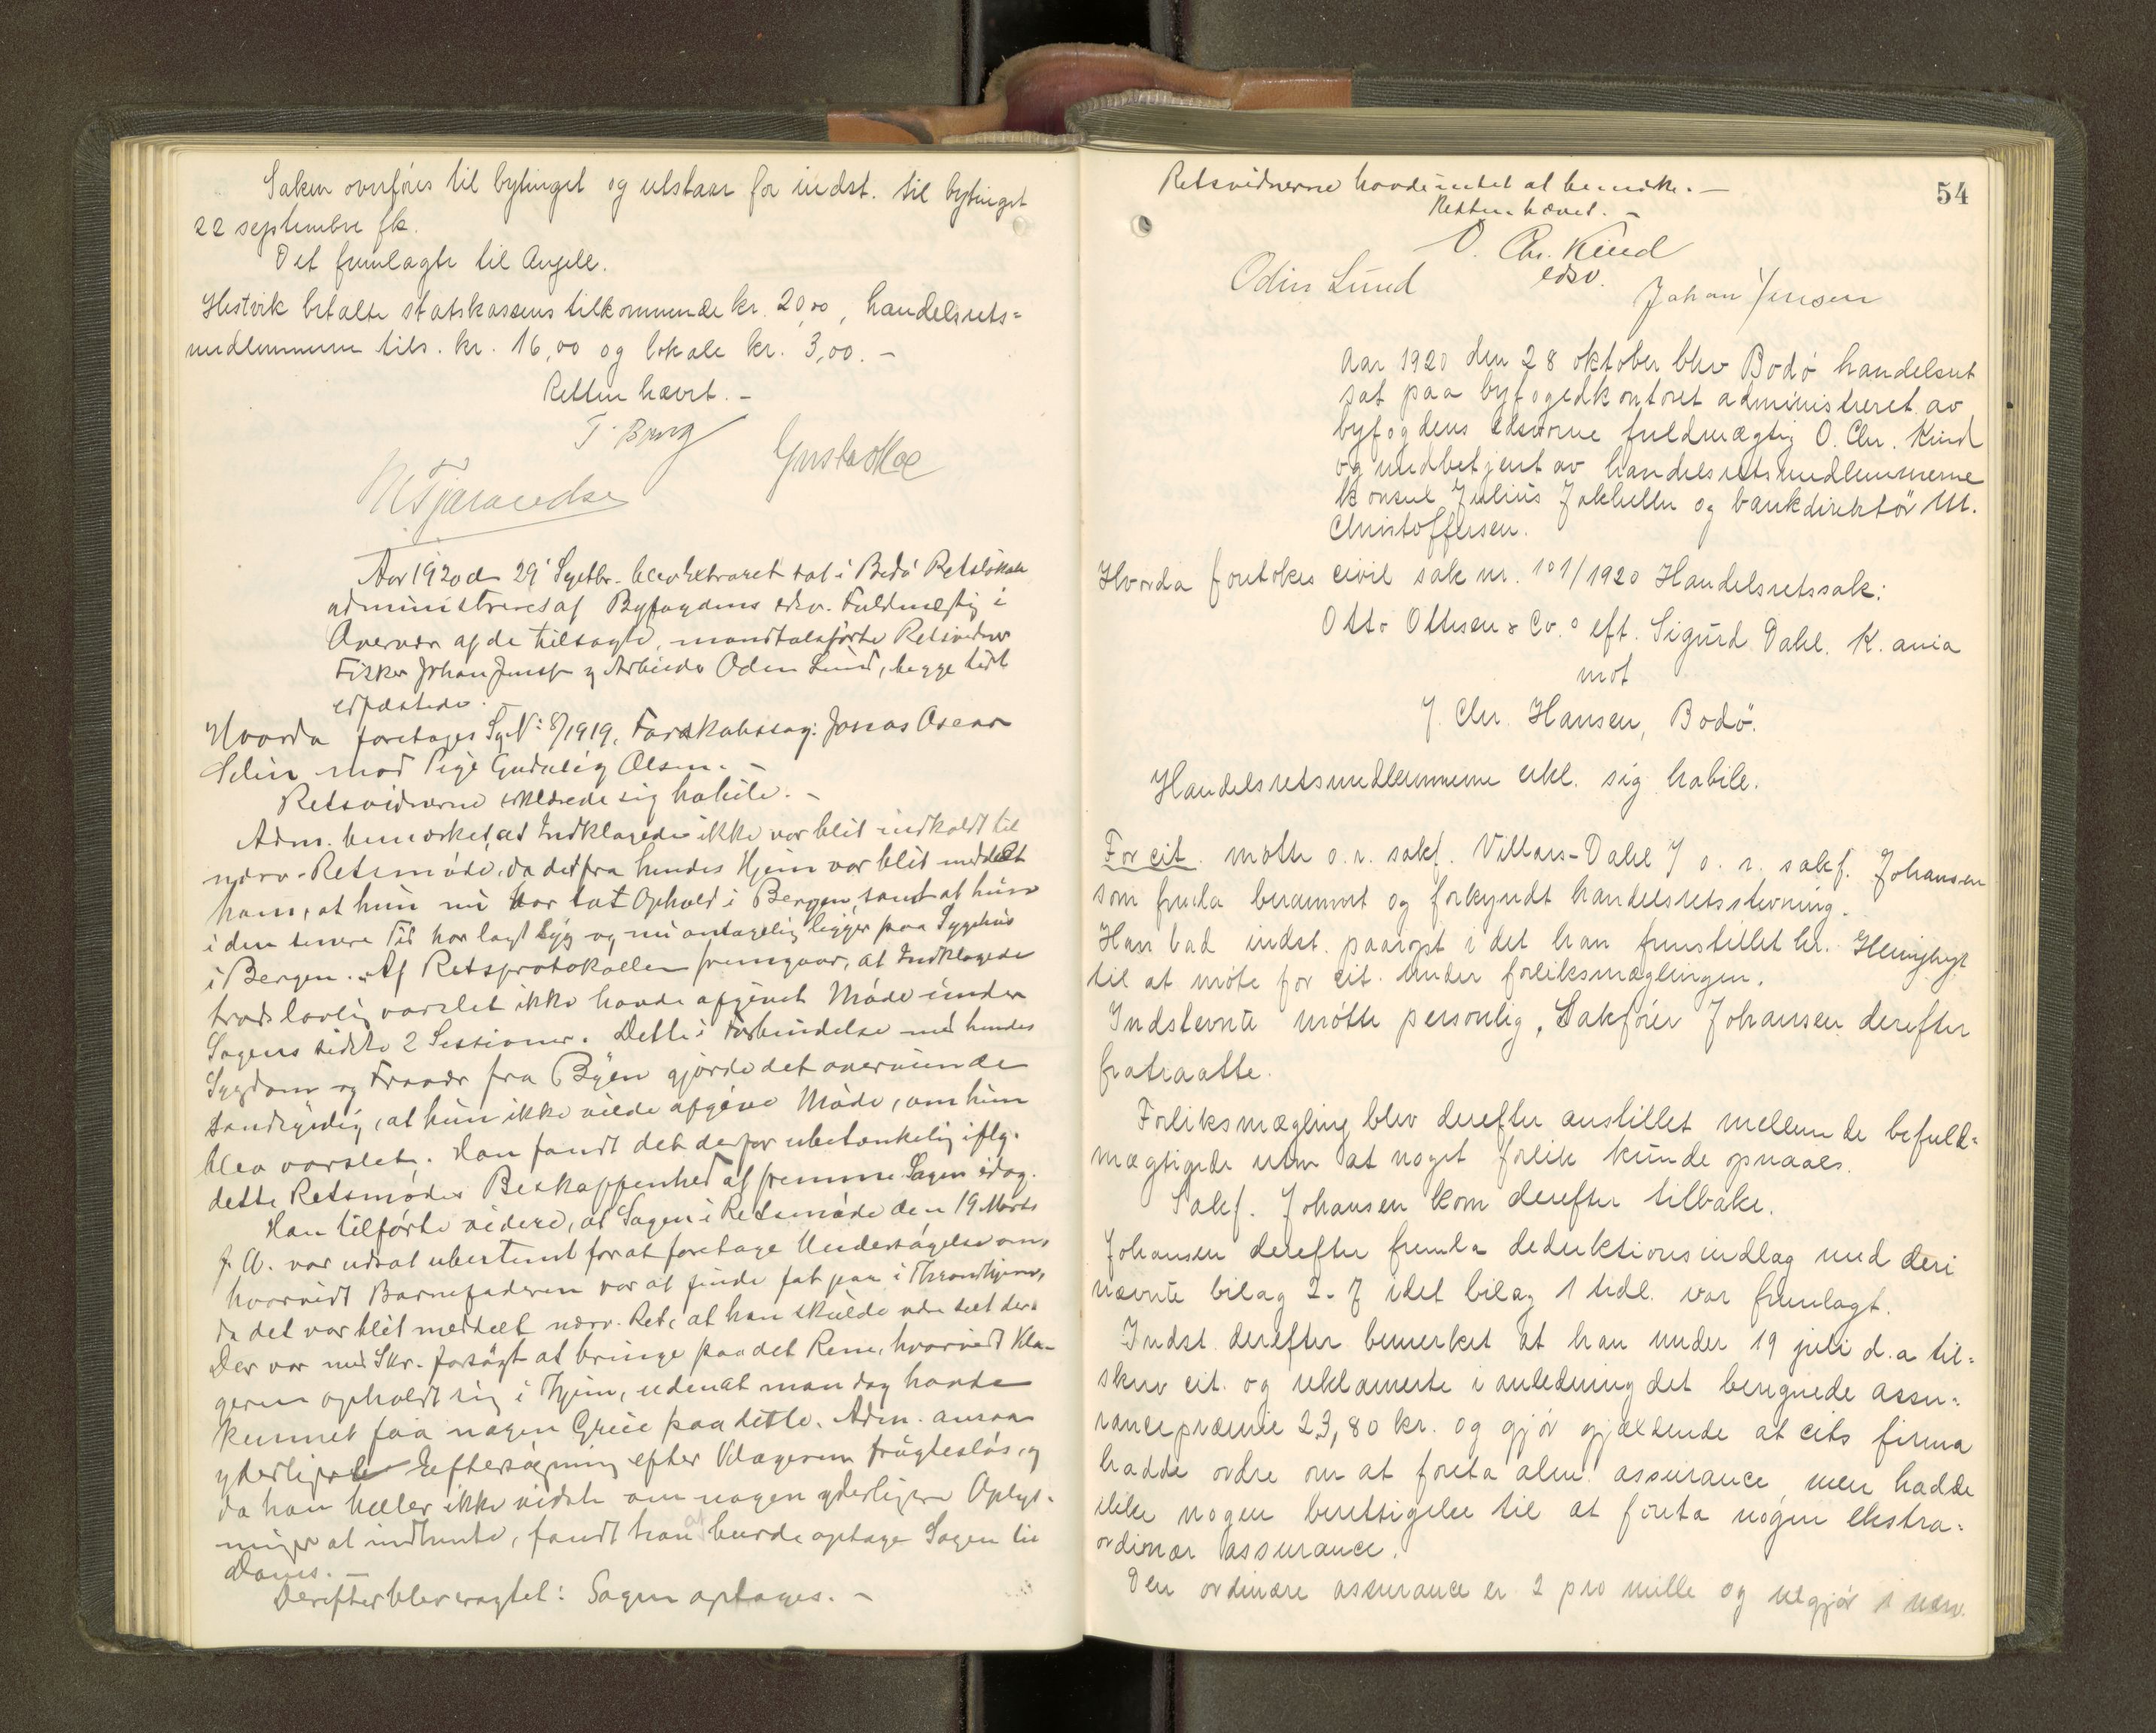 Saken overføres til bytinget og utstaar for indst. til bytinget
22 septembre fk.
Det fremlagte til Angell.
Hestvik betalte statskassens tilkommende kr. 20,00, handelsrets=
medlemmerne tils. kr. 16,00 og lokale kr. 3,00. -
Retten hævet. -
T. Borg
Aar 1920 d. 29' Septbr. blev Extraret sat i Bodø Retslokale
administreret af Byfogdens edsv. Fuldmægtig i
Overvær af de tilsagte, mandtalsførte Retsvidner
Fisker Johan Jensen og Arbeider Odin Lund, begge tidl.
edfæstede. -
Hvorda foretages Sg. No: 8/1919, Farskabssag: Jonas Oscar
Selin mod Pige Gudalég Olsen. -
Retsvidnerne erklærede sig habile. -
Adm. bemærket, at Indklagede ikke var blit indkaldt til
nærv. Retsmøde, da det fra hendes Hjem var blit meddelt
ham, at hun nu har tat Ophold i Bergen, samt at hun
i den senere Tid har lagt syg og nu antagelig ligger paa Sygehus
i Bergen. Af Retsprotokollen fremgaar, at Indklagede
trods lovlig varslet ikke havde afgivet Møde under
Sagens sidste 2 Sessioner. Dette i Forbindelse med hendes
Sygdom og Fravær fra Byen gjorde det overveiende
sandsynlig, at hun ikke vilde afgive Møde, om hun
blev varslet. Han fandt det derfor ubetænkelig iflg.
dette Retsmødes Beskaffenhed at fremme Sagen idag.
Han tilførte videre, at Sagen i Retsmøde den 19 Marts
f. A. var udsat ubestemt for at foretage Undersøgelse om,
hvorvidt Barnefaderen var at finde fat paa i Throndhjem,
da det var blit meddelt nærv. Ret, at han skulde
Der var med Skr. forsøgt at bringe paa det Rene, hvorvidt Kla-
geren opholdt sig i Thjem, uden at man dog havde
kunnet faa nogen Greie paa dette. Adm. ansaa
yderligere Eftersøgning efter Klageren frugtesløs, og
da han heller ikke vidste om nogen yderligere Oplys-
ninger at indhente, fandt han at burde optage Sagen til
Doms. -
Derefter blev eragtet: Sagen optages. -
54
Retsvidnerne havde intet at bemærke. -
Retten hævet. -
O. Chr. Kind
edsv.
Odin Lund
Johan Jensen
Aar 1920 den 28 oktober blev Bodø handelsret
sat paa byfogedkontoret administreret av
byfogdens edsvorne fuldmægtig O. Chr. Kind
og medbetjent av handelsretsmedlemmerne
konsul Julius Jakhelln og bankdirektør M.
Christoffersen.
Hvorda foretokes civil sak nr. 101/1920 Handelsretssak:
Otto Ottesen & Co.o eft. Sigurd Dahl. K. ania
mot
J. Chr. Hansen, Bodø.
Handelsretsmedlemmerne erkl. sig habile.
For cit. møtte o.r. sakf. Villars-Dahl J o. r. sakf. Johansen
som fremla berammet og forkyndt handelsretsstevning.
Han bad indst. paaropt i det han fremstillet hr.
til at møte for cit. under forliksmæglingen.
Indstevnte møtte personlig, Sakfører Johansen derefter
fratraatte.
Forliksmægling blev derefter anstillet mellem de befuld=
mægtigede uten at noget forlik kunde opnaaes.
Sakf. Johansen kom derefter tilbake.
Johansen derefter fremla deduktionsindlæg med deri
nævnte bilag 2-7 idet bilag 1 tidl. var fremlagt.
Indst. derefter bemerket at han under 19 juli d. a. til=
skrev cit. og reklamerte i anledning det beregnede assu=
rancepræmie 23,80 kr. og gjør gjældende at cits firma
hadde ordre om at foreta alm. assurance, men hadde
ikke nogen berettigelse til at foreta nogen ekstra=
ordinær assurance.
Den ordinære assurance er 2 pro mille og utgjør i nærv.